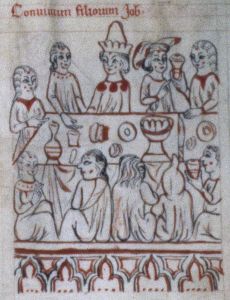 Convivium filiorum Job.